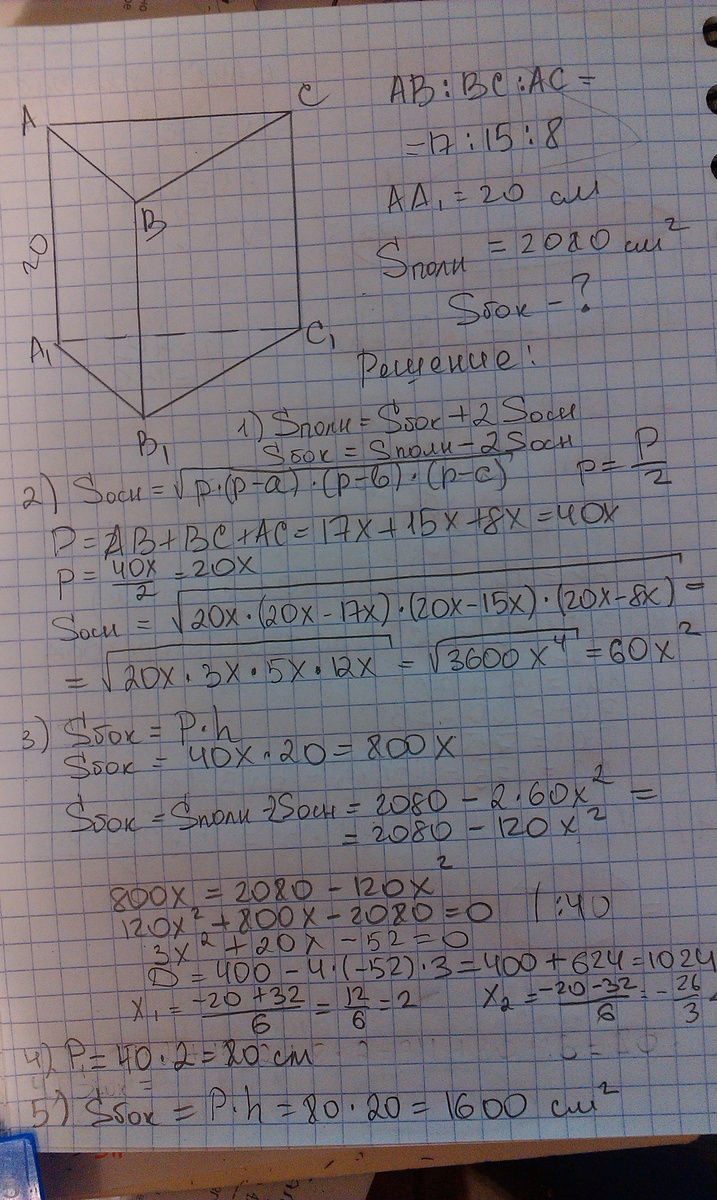 A
C
B
20
A₁
C₁
B₁
AB : BC : AC =
= 17 : 15 : 8
AA₁ = 20 см
Sполн = 2080 см²
Sбок - ?
Решение:
1) Sполн = Sбок + 2 Sосн
Sбок = Sполн - 2 Sосн
2) Sосн = √(p·(p-a)·(p-b)·(p-c)) p = P/2
P = AB + BC + AC = 17x + 15x + 8x = 40x
p = 40x/2 = 20x
Sосн = √(20x·(20x-17x)·(20x-15x)·(20x-8x)) =
= √(20x·3x·5x·12x) = √(3600x⁴) = 60x²
3) Sбок = P·h
Sбок = 40x·20 = 800x
Sбок = Sполн - 2Sосн = 2080 - 2·60x² =
= 2080 - 120x²
800x = 2080 - 120x²
120x² + 800x - 2080 = 0 | :40
3x² + 20x - 52 = 0
D = 400 - 4·(-52)·3 = 400 + 624 = 1024
x₁ = (-20+32)/6 = 12/6 = 2 x₂ = (-20-32)/6 = -26/3
4) P = 40·2 = 80 см
5) Sбок = P·h = 80·20 = 1600 см²